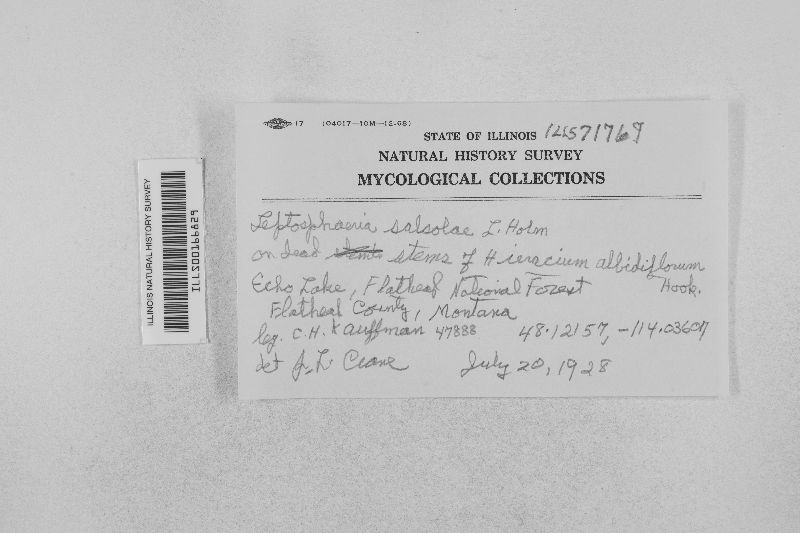 17 (04017—10M—12-68)
STATE OF ILLINOIS ILLS71769
NATURAL HISTORY SURVEY
MYCOLOGICAL COLLECTIONS
Leptosphaeria salsolae L. Holm
on dead stems of Hieracium albidiflorum
Echo Lake, Flathead National Forest Hook.
Flathead County, Montana
leg. C.H. Kauffman 47888 48.12157, -114.03607
det J.L. Crane July 20, 1928
ILLINOIS NATURAL HISTORY SURVEY
ILLS00166829